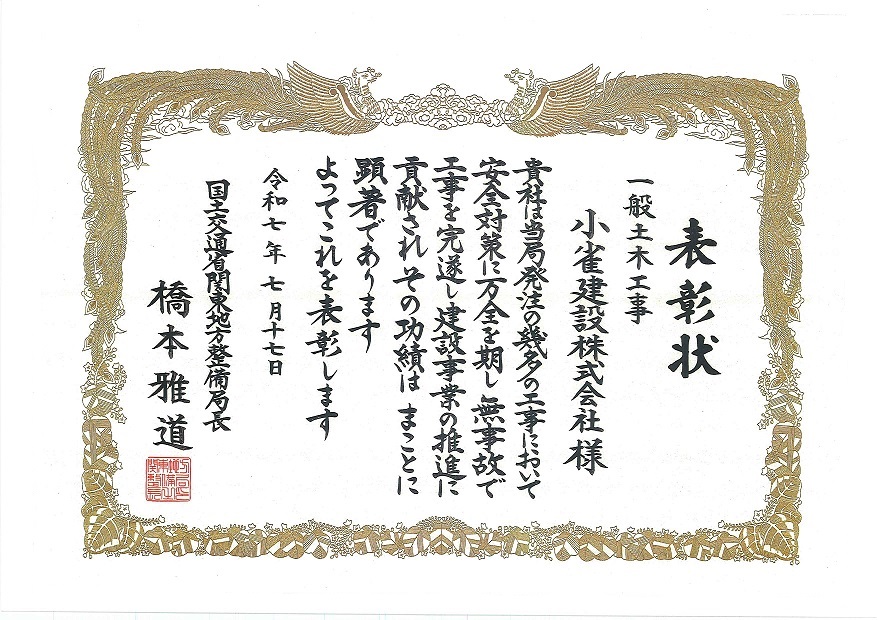 表彰状
一般土木工事
小雀建設株式会社様
貴社は当局発注の幾多の工事において
安全対策に万全を期し無事故で
工事を完遂し建設事業の推進に
貢献されその功績はまことに
顕著であります
よってこれを表彰します
令和七年七月十七日
国土交通省関東地方整備局長
橋本雅道